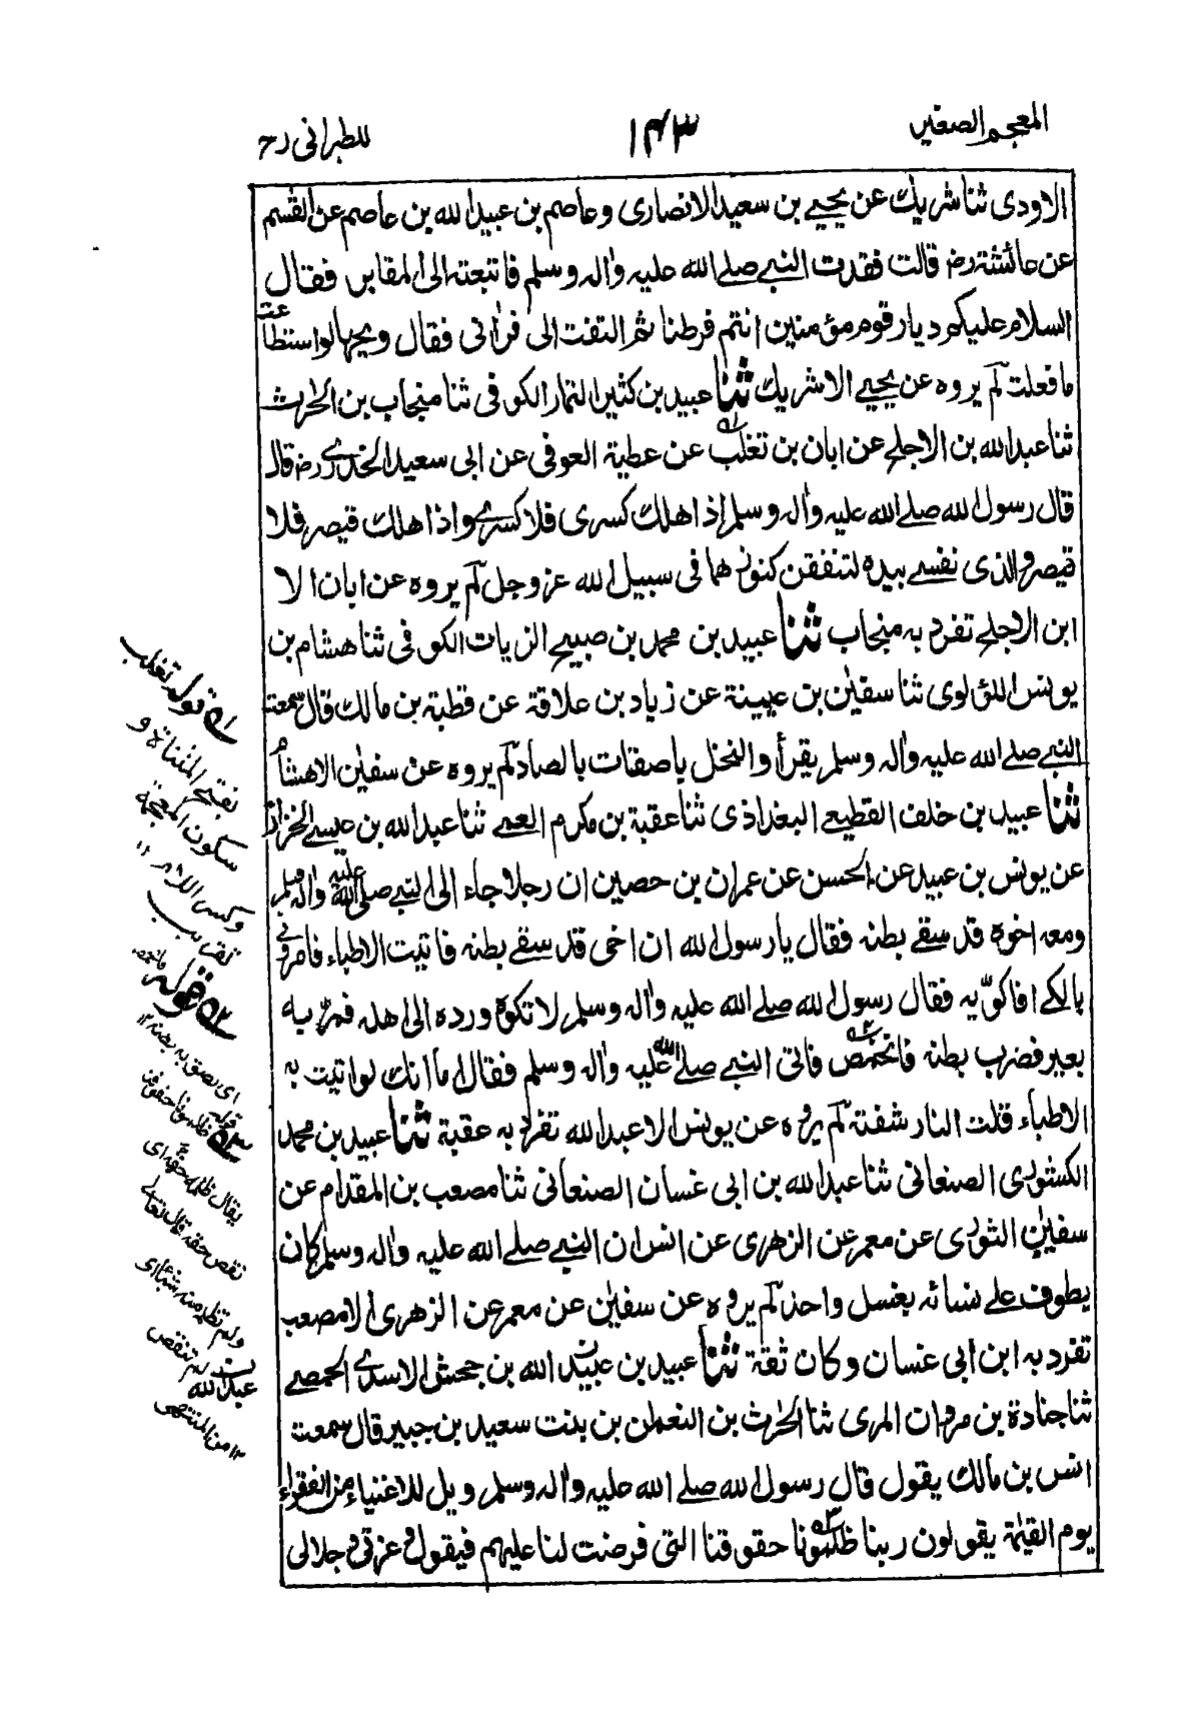 المعجم الصغير
١٤٣
للطبرانی رح
الاودی ثنا شريك عن يحيى بن سعيد الانصاری وعاصم بن عبيد الله بن عاصم عن القٰسم
عن عائشة رض قالت فقدت النبی صلی الله عليه واٰله وسلم فاتبعته الی المقابر فقال
السلام عليكم ديار قوم مؤمنين انتم فرطنا ثم التفت الی فراٰنی فقال ويحها لو استطاعت
ما فعلت لم يروه عن يحيى الا شريك ثنا عبيد بن كثير التمار الكوفی ثنا منجاب بن الحٰرث
ثنا عبد الله بن الاجلح عن ابان بن تغلب عن عطية العوفی عن ابی سعيد الخدری رض قال
قال رسول الله صلی الله عليه واٰله وسلم اذا هلك كسری فلا كسری واذا هلك قيصر فلا
قيصر والذی نفسی بيده لتنفقن كنوزهما فی سبيل الله عز وجل لم يروه عن ابان الا
ابن الاجلح تفرد به منجاب ثنا عبيد بن محمد بن صبيح الزيات الكوفی ثنا هشام بن
يونس اللؤلوی ثنا سفيٰن بن عيينة عن زياد بن علاقة عن قطبة بن مالك قال سمعت
النبی صلی الله عليه واٰله وسلم يقرأ والنخل باصقات بالصاد لم يروه عن سفيٰن الا هشام
ثنا عبيد بن خلف القطيعی البغداذی ثنا عقبة بن مكرم العمی ثنا عبد الله بن عيسی الخزاز
عن يونس بن عبيد عن الحسن عن عمران بن حصين ان رجلا جاء الی النبی صلی الله عليه واٰله وسلم
ومعه اخوه قد سقی بطنه فقال يا رسول الله ان اخی قد سقی بطنه فاتيت الاطباء فامرونی
بالكی افاكويه فقال رسول الله صلی الله عليه واٰله وسلم لا تكوه ورده الی اهله فمر به
بعير فضرب بطنه فانخمص فاتی النبی صلی الله عليه واٰله وسلم فقال اما انك لو اتيت به
الاطباء قلت النار شفته لم يروه عن يونس الا عبد الله تفرد به عقبة ثنا عبيد بن محمد
الكشوری الصنعانی ثنا عبد الله بن ابی غسان الصنعانی ثنا مصعب بن المقدام عن
سفيٰن الثوری عن معمر عن الزهری عن انس ان النبی صلی الله عليه واٰله وسلم كان
يطوف علی نسائه بغسل واحد لم يروه عن سفيٰن عن معمر عن الزهری الا مصعب
تفرد به ابن ابی غسان وكان ثقة ثنا عبيد بن عبيد الله بن جحش الاسدی الحمصی
ثنا جنادة بن مروان المری ثنا الحٰرث بن النعمٰن بن بنت سعيد بن جبير قال سمعت
انس بن مالك يقول قال رسول الله صلی الله عليه واٰله وسلم ويل للاغنياء من الفقراء
يوم القيٰمة يقولون ربنا ظلمونا حقوقنا التی فرضت لنا عليهم فيقول وعزتی وجلالی
له قوله تغلب
بفتح المثناة و
سكون المعجمة
وكسر اللام ١٢
تقريب
٢ه قوله فانخمص
٣ه قوله ظلمونا حقوقنا
يقال ظلمه حقه ای
نقص حقه قال تعالی
ولم تظلم منه شيئا ای
لم تنقص
١٢ من المنتهی